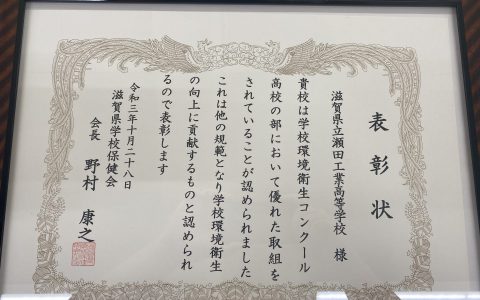 表彰状
滋賀県立瀬田工業高等学校 様
貴校は学校環境衛生コンクール
高校の部において優れた取組を
されていることが認められました
これは他の規範となり学校環境衛生
の向上に貢献するものと認められ
るので表彰します
令和三年十月二十八日
滋賀県学校保健会
会長 野村 康之